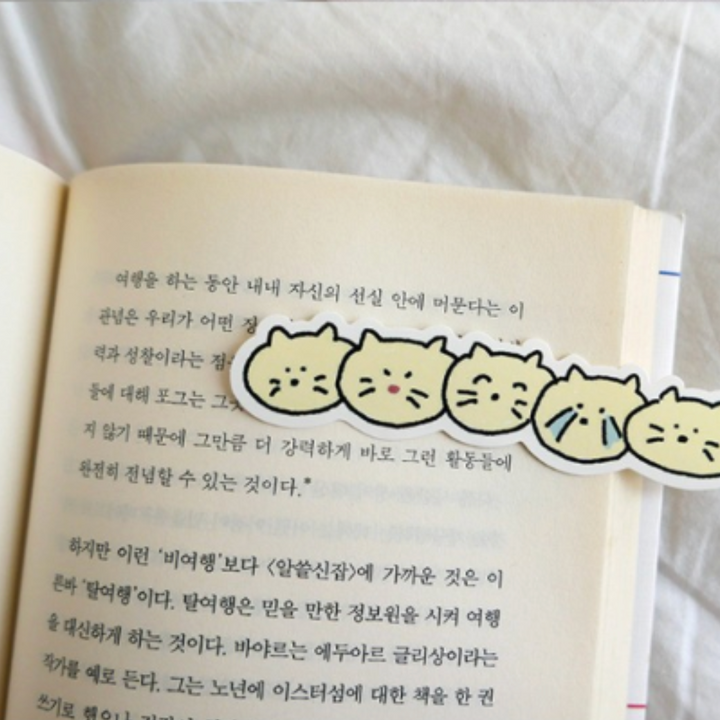 여행을 하는 동안 내내 자신의 선실 안에 머문다는 이
관념은 우리가 어떤
력과 성찰이라는
들에 대해 포그는
지 않기 때문에 그만큼 더 강력하게 바로 그런 활동들에
완전히 전념할 수 있는 것이다.*
하지만 이런 ‘비여행’보다 〈알쓸신잡〉에 가까운 것은 이
른바 ‘탈여행’이다. 탈여행은 믿을 만한 정보원을 시켜 여행
을 대신하게 하는 것이다. 바야르는 에두아르 글리상이라는
작가를 예로 든다. 그는 노년에 이스터섬에 대한 책을 한 권
쓰기로